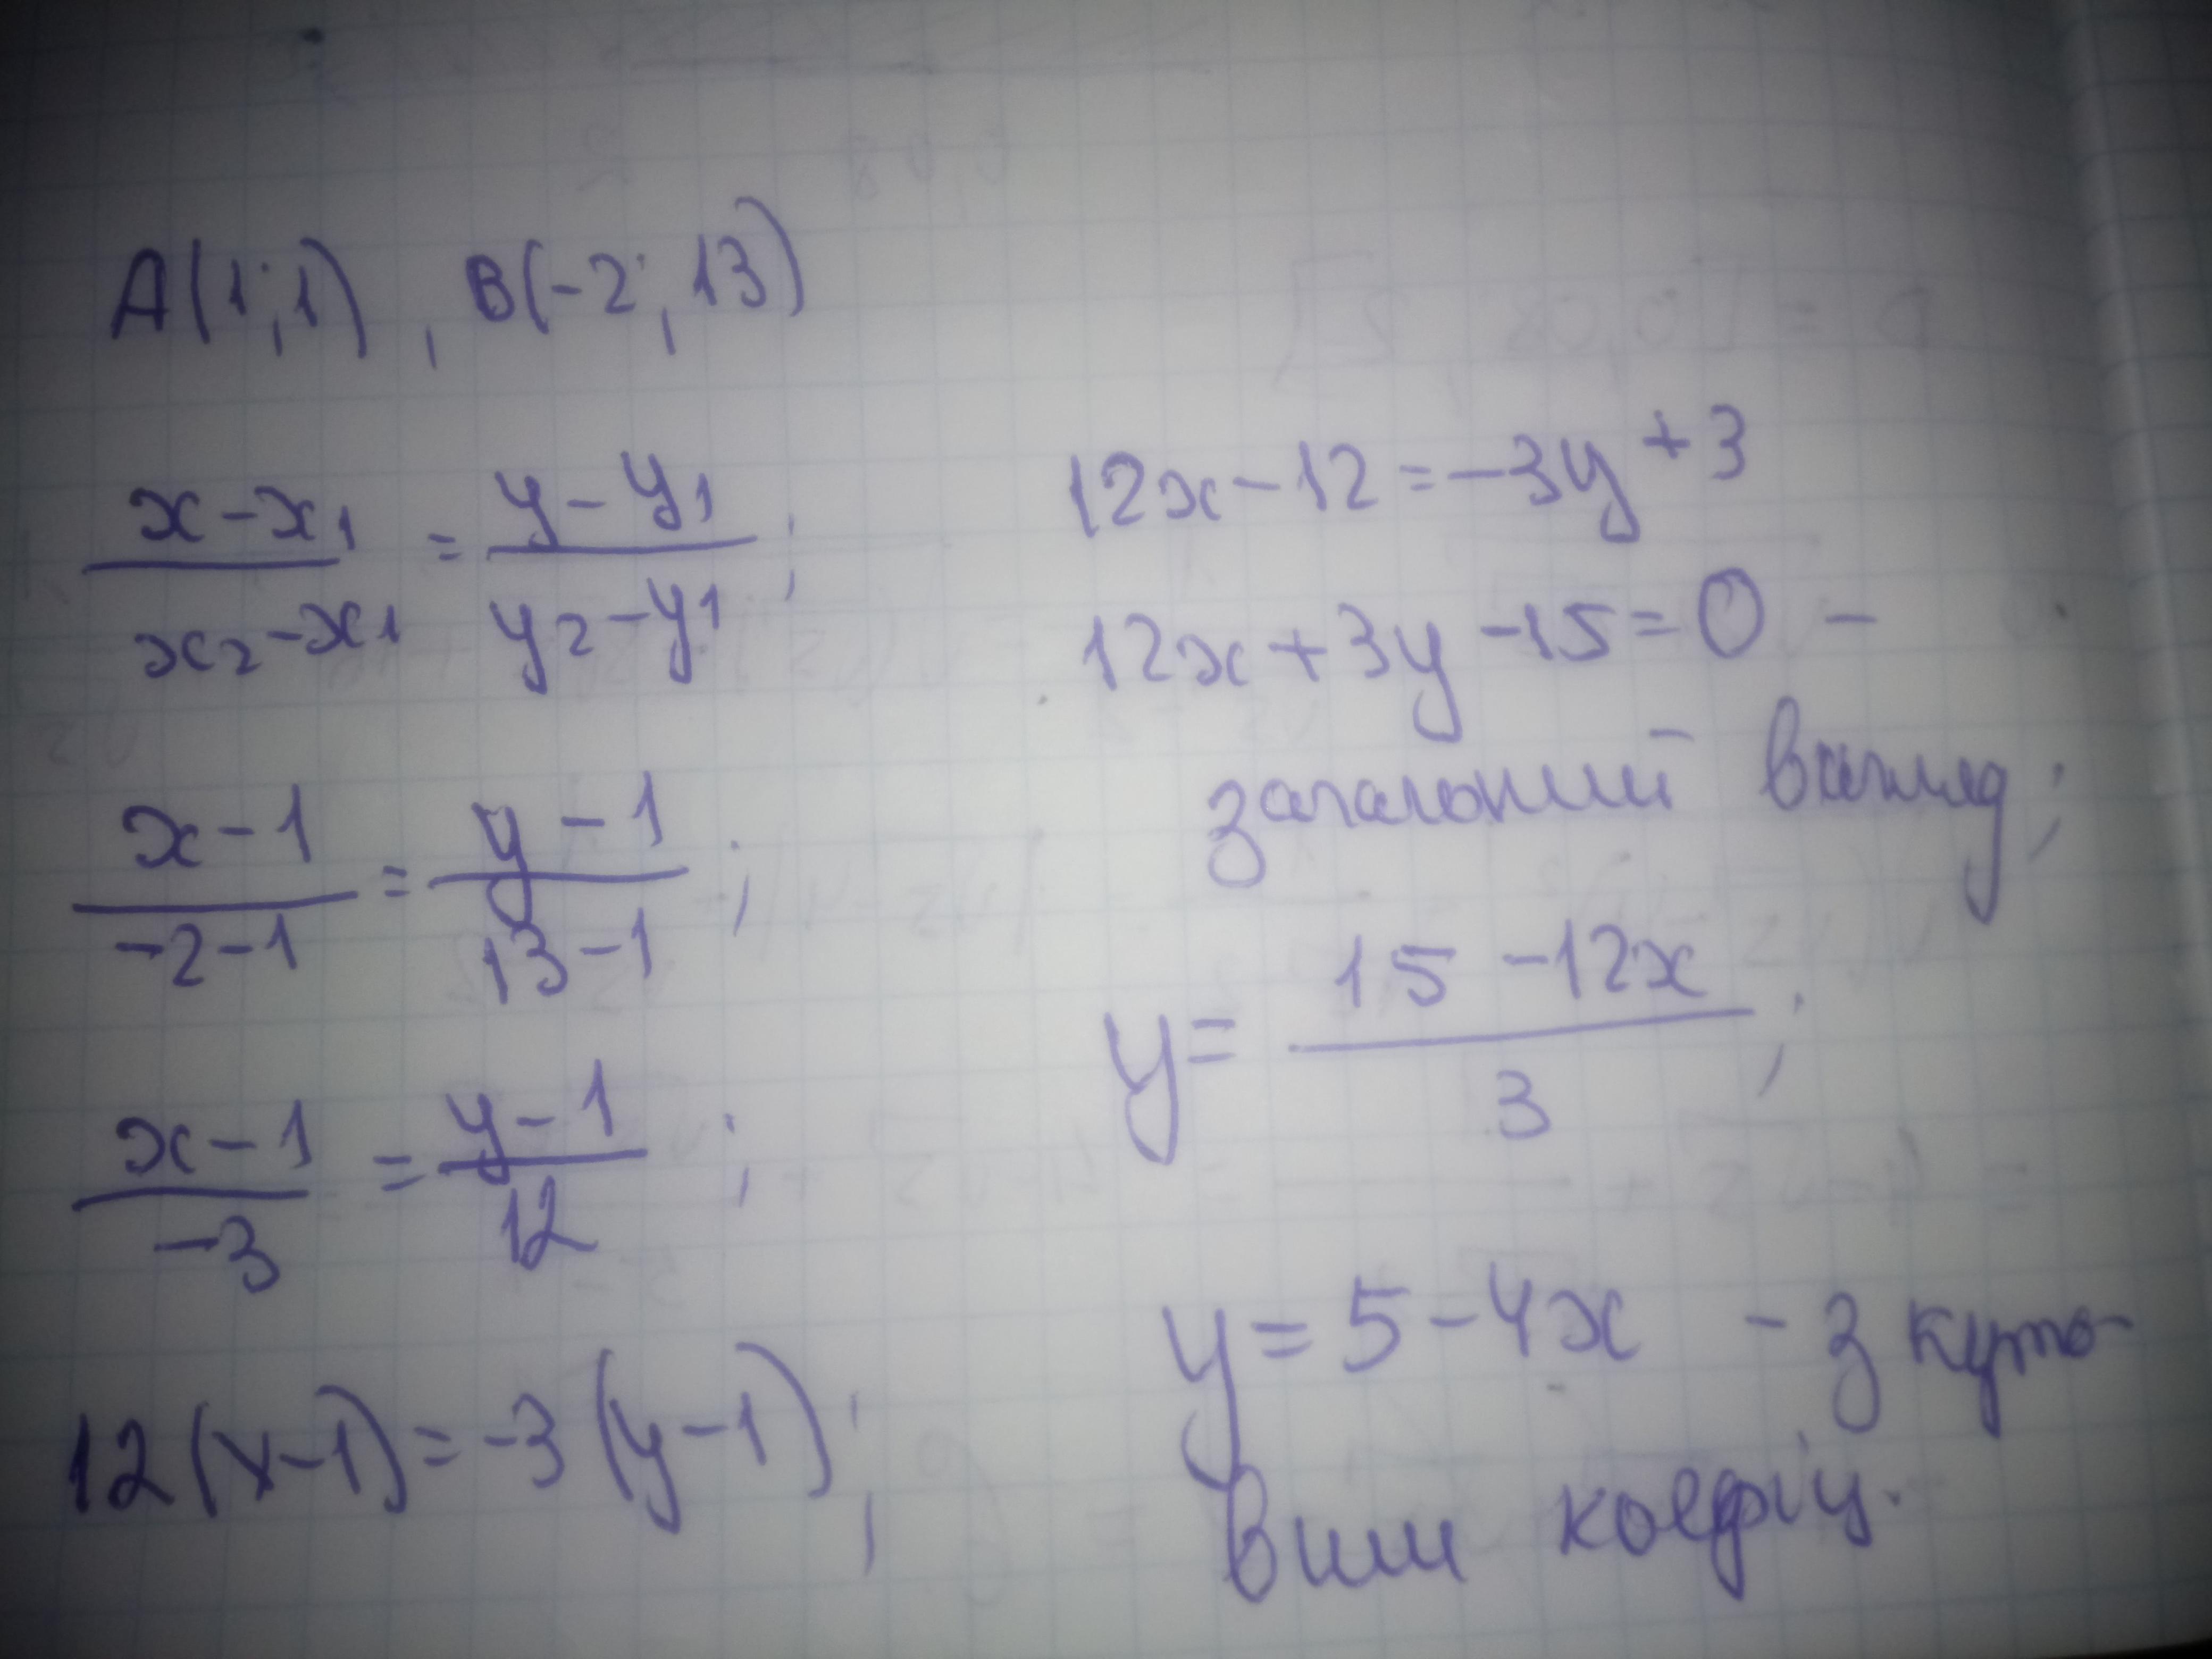 A(1;1), B(-2;13)
(x-x₁)/(x₂-x₁) = (y-y₁)/(y₂-y₁);
(x-1)/(-2-1) = (y-1)/(13-1);
(x-1)/(-3) = (y-1)/12;
12(x-1)=-3(y-1);
12x-12=-3y+3
12x+3y-15=0 -
загальний вигляд;
y=(15-12x)/3;
y=5-4x - з куто-
вим коефіц.